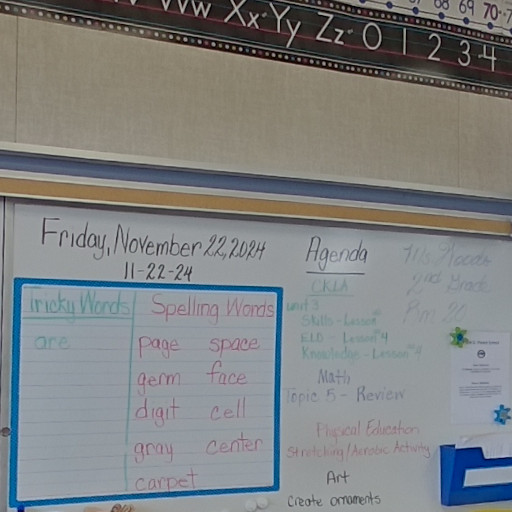 Ww Xx Yy Zz 0 1 2 3 4
68 69 70
Friday, November 22, 2024
11-22-24
Tricky Words
are
Spelling Words
page space
germ face
digit cell
gray center
carpet
Agenda
CKLA
unit 3
Skills - Lesson
ELD - Lesson #4
Knowledge - Lesson #4
Math
Topic 5 - Review
Physical Education
Stretching/Aerobic Activity
Art
Create ornaments
2nd Grade
Rm 20